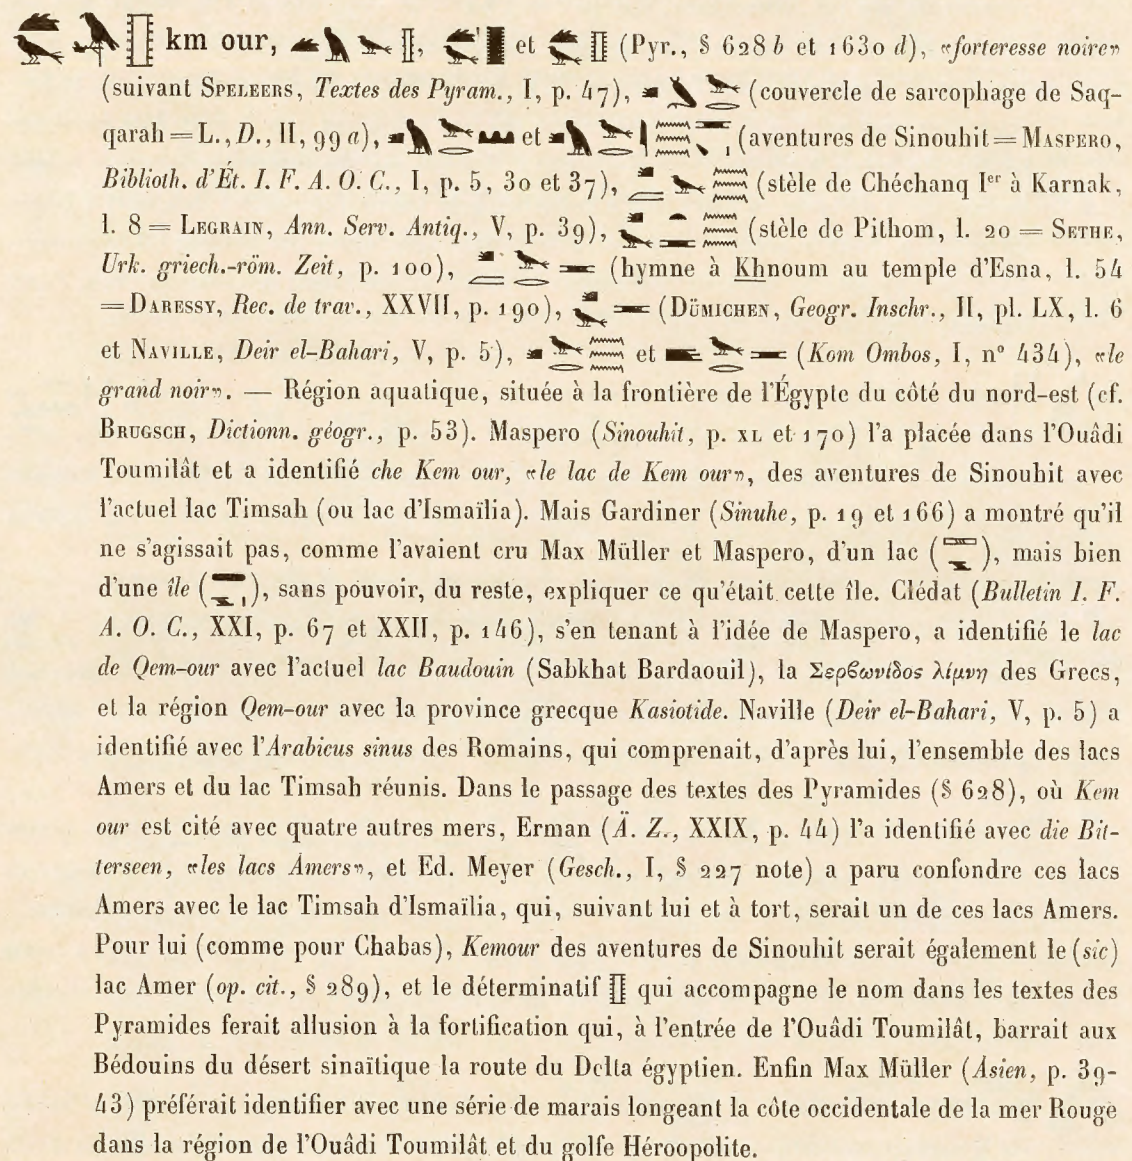 km our, , et (Pyr., § 628 b et 1630 d), «forteresse noire»
(suivant SPELEERS, Textes des Pyram., I, p. 47), (couvercle de sarcophage de Saq-
qarah = L., D., II, 99 a), et (aventures de Sinouhit = MASPERO,
Biblioth. d'Ét. I. F. A. O. C., I, p. 5, 30 et 37), (stèle de Chéchanq Ier à Karnak,
l. 8 = LEGRAIN, Ann. Serv. Antiq., V, p. 39), (stèle de Pithom, l. 20 = SETHE,
Urk. griech.-röm. Zeit, p. 100), (hymne à Khnoum au temple d'Esna, l. 54
= DARESSY, Rec. de trav., XXVII, p. 190), (DÜMICHEN, Geogr. Inschr., II, pl. LX, l. 6
et NAVILLE, Deir el-Bahari, V, p. 5), et (Kom Ombos, I, n° 434), «le
grand noir». — Région aquatique, située à la frontière de l'Égypte du côté du nord-est (cf.
BRUGSCH, Dictionn. géogr., p. 53). Maspero (Sinouhit, p. XL et 170) l'a placée dans l'Ouâdi
Toumilât et a identifié che Kem our, «le lac de Kem our», des aventures de Sinouhit avec
l'actuel lac Timsah (ou lac d'Ismaïlia). Mais Gardiner (Sinuhe, p. 19 et 166) a montré qu'il
ne s'agissait pas, comme l'avaient cru Max Müller et Maspero, d'un lac ( ), mais bien
d'une île ( ), sans pouvoir, du reste, expliquer ce qu'était cette île. Clédat (Bulletin I. F.
A. O. C., XXI, p. 67 et XXII, p. 146), s'en tenant à l'idée de Maspero, a identifié le lac
de Qem-our avec l'actuel lac Baudouin (Sabkhat Bardaouil), la Σερϐωνίδος λίμνη des Grecs,
et la région Qem-our avec la province grecque Kasiotide. Naville (Deir el-Bahari, V, p. 5) a
identifié avec l'Arabicus sinus des Romains, qui comprenait, d'après lui, l'ensemble des lacs
Amers et du lac Timsah réunis. Dans le passage des textes des Pyramides (§ 628), où Kem
our est cité avec quatre autres mers, Erman (Ä. Z., XXIX, p. 44) l'a identifié avec die Bit-
terseen, «les lacs Amers», et Ed. Meyer (Gesch., I, § 227 note) a paru confondre ces lacs
Amers avec le lac Timsah d'Ismaïlia, qui, suivant lui et à tort, serait un de ces lacs Amers.
Pour lui (comme pour Chabas), Kemour des aventures de Sinouhit serait également le (sic)
lac Amer (op. cit., § 289), et le déterminatif qui accompagne le nom dans les textes des
Pyramides ferait allusion à la fortification qui, à l'entrée de l'Ouâdi Toumilât, barrait aux
Bédouins du désert sinaïtique la route du Delta égyptien. Enfin Max Müller (Asien, p. 39-
43) préférait identifier avec une série de marais longeant la côte occidentale de la mer Rouge
dans la région de l'Ouâdi Toumilât et du golfe Héroopolite.